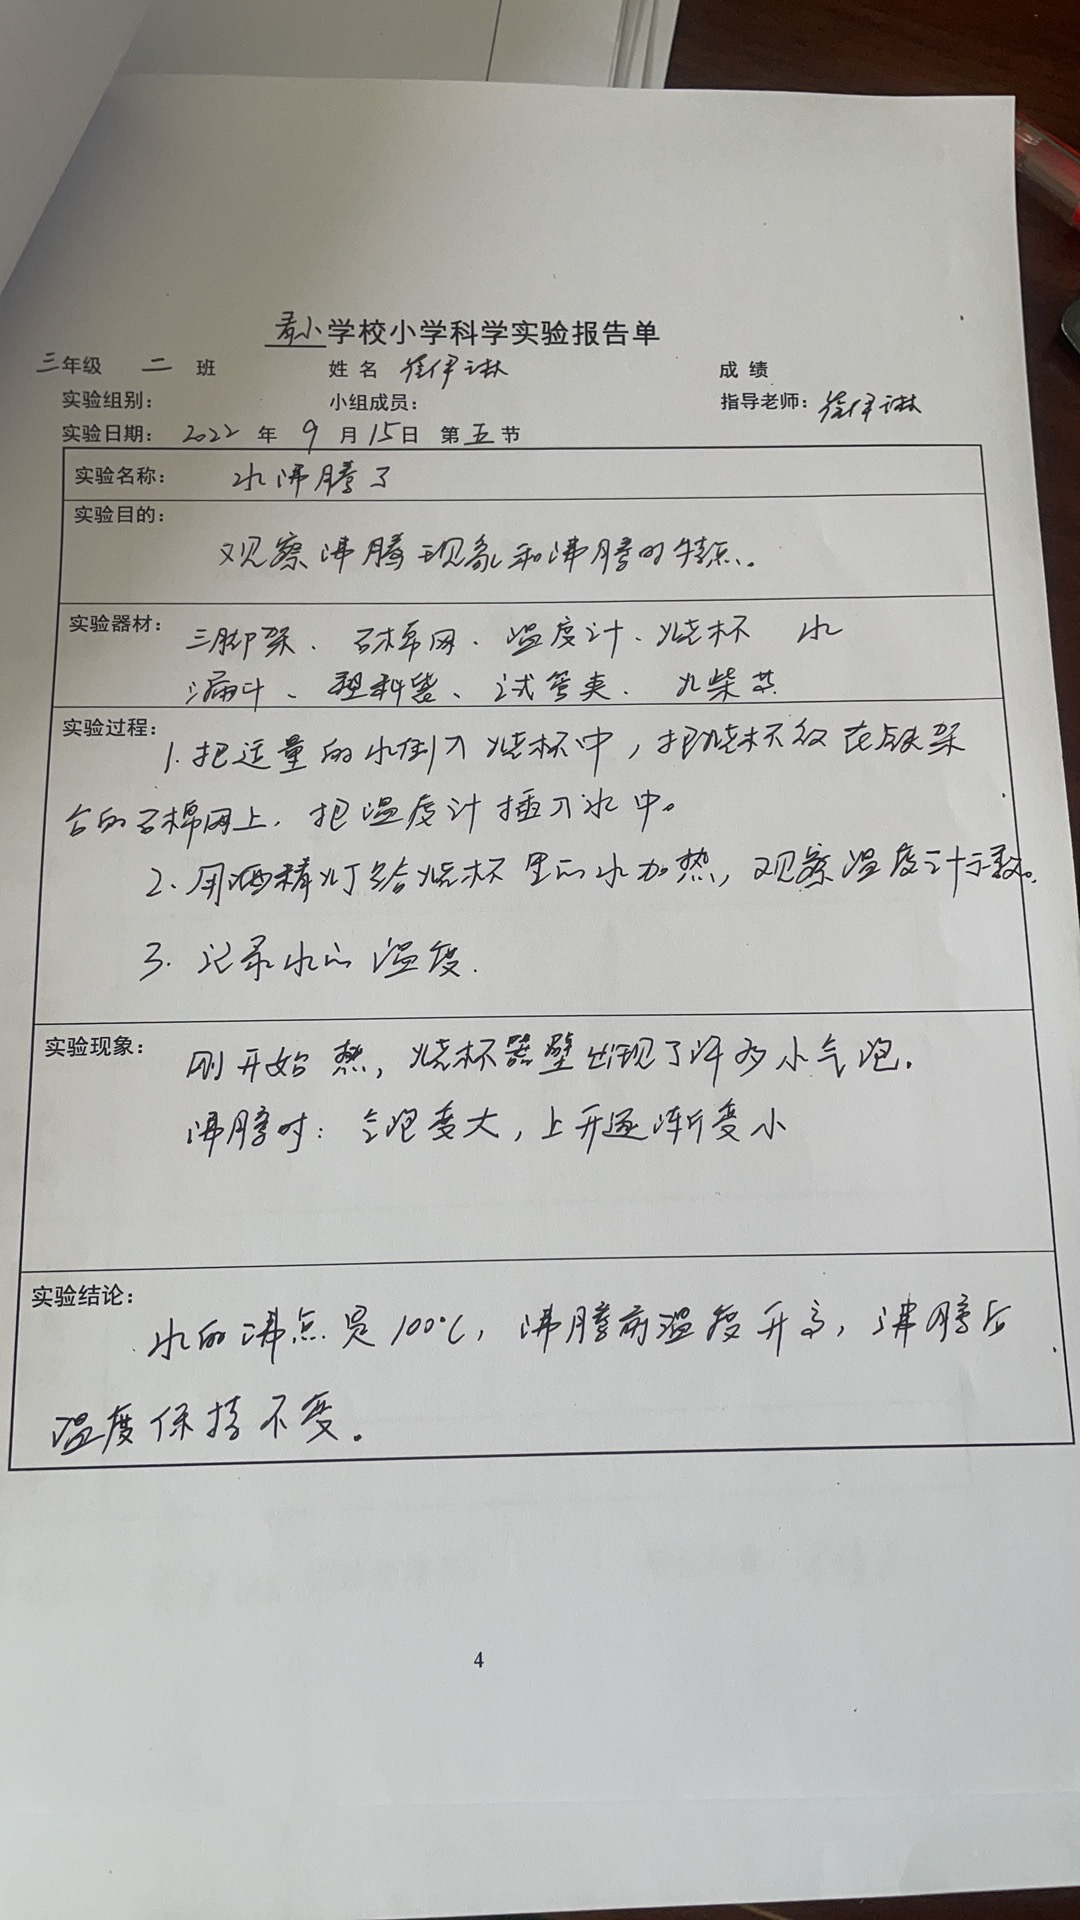 学校小学科学实验报告单
三年级 二 班 姓 名 成 绩
实验组别: 小组成员: 指导老师:
实验日期: 2022 年 9 月 15日 第 五 节
实验名称: 水沸腾了
实验目的:
观察沸腾现象和沸腾的特点.
实验器材: 三脚架、石棉网、温度计、烧杯 水
漏斗、塑料袋、试管夹. 火柴
实验过程:
1.把适量的水倒入烧杯中,把烧杯放在铁架
台的石棉网上,把温度计插入水中。
2.用酒精灯给烧杯里的水加热,观察温度计示数。
3. 记录水的温度.
实验现象: 刚开始 热,烧杯器壁出现了许多小气泡.
沸腾时: 气泡变大,上升逐渐变小
实验结论:
水的沸点是100℃,沸腾前温度升高,沸腾后
温度保持不变。
4